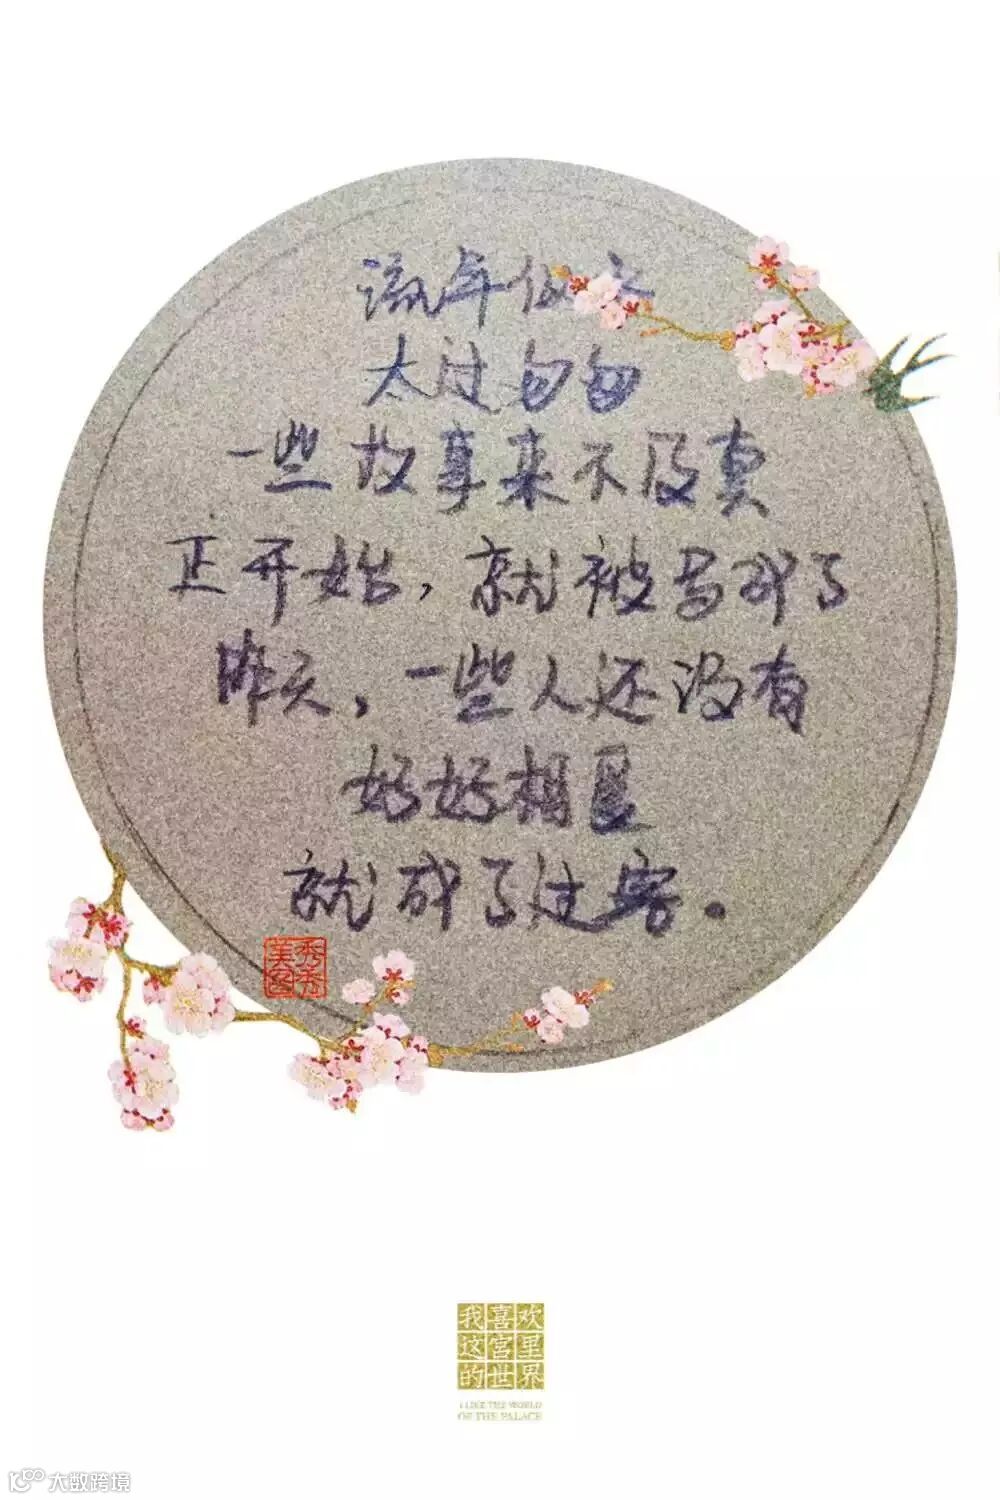 流年似水
太过匆匆
一些故事来不及真
正开始，就被写成了
昨天，一些人还没有
好好相
就成了过客。
美图秀秀
我喜欢
这宫里
的世界
I LIKE THE WORLD
OF THE PALACE
大数跨境